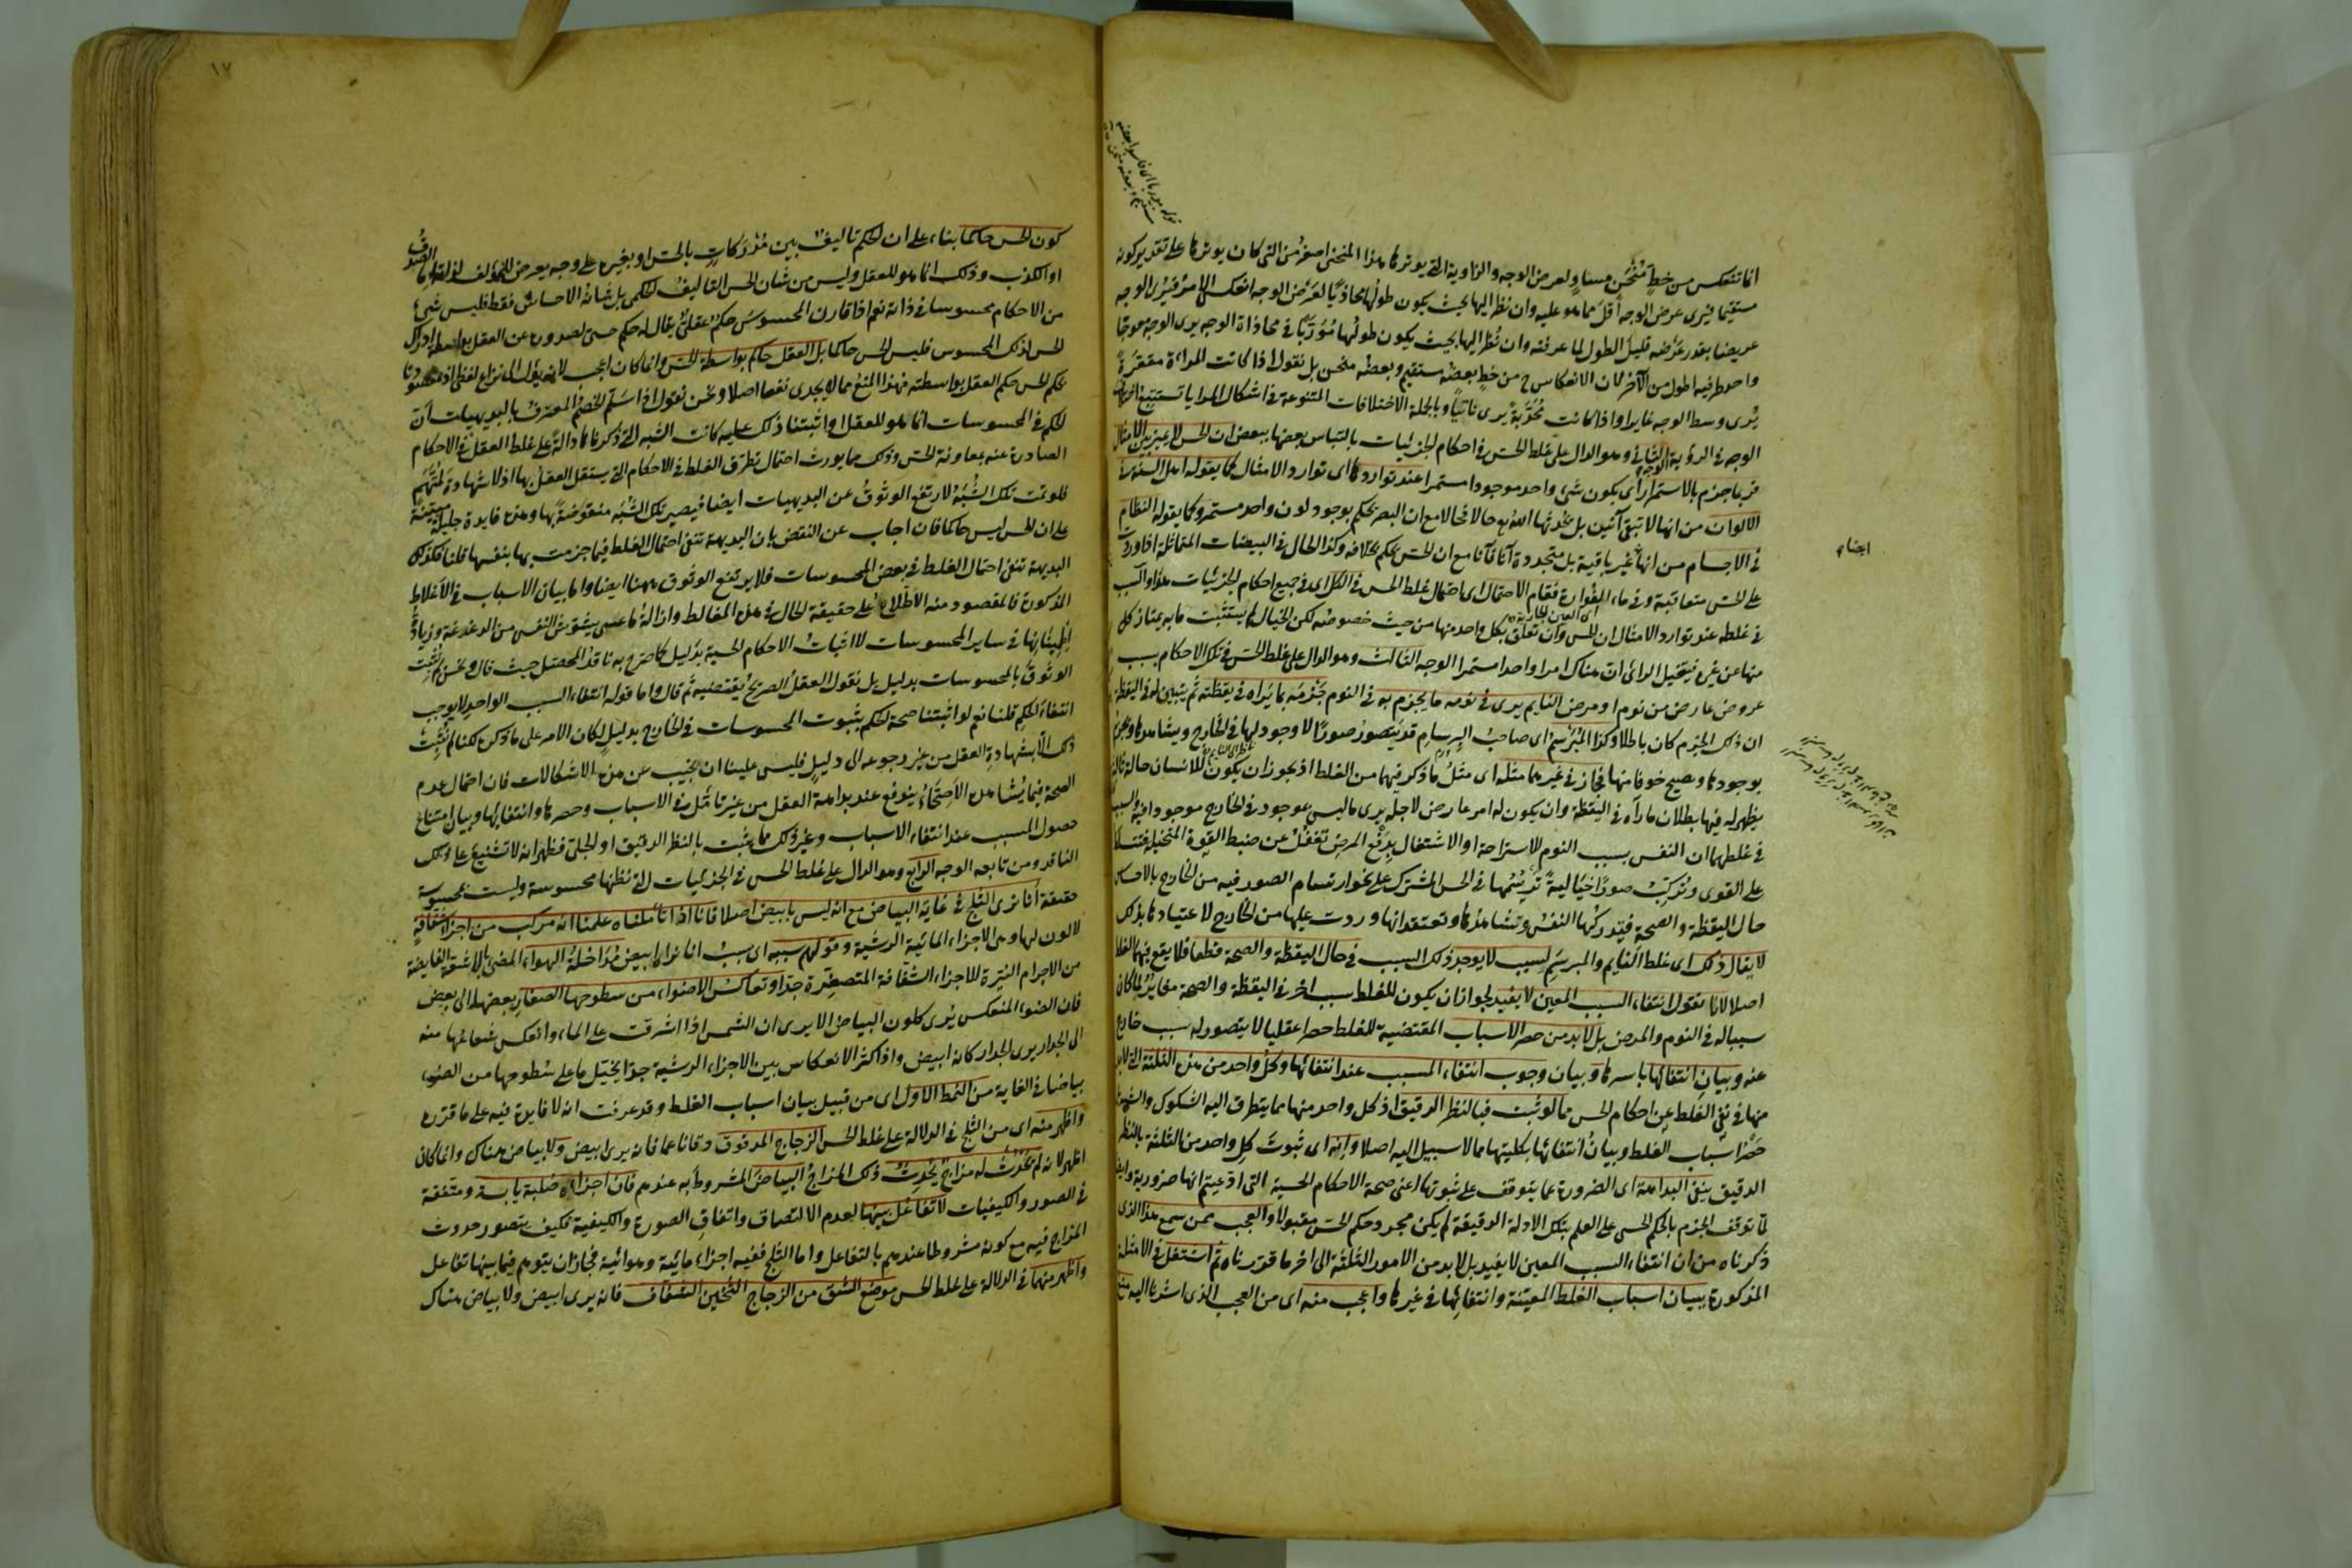 انما تنعكس من خط منحن مساو لعرض الوجه والزاوية التي يوترها هذا المنحنى اصغر من التي كان يوترها على تقدير كونه
مستقيما فيرى عرض الوجه أقل مما هو عليه وان نظر اليها بحيث يكون طولها محاذيا لعرض الوجه انعكس الامر فيرى الوجه
عريضا بقدر عرضه قليل الطول لما عرفته وان نظر اليها بحيث يكون طولها مؤربا في محاذاة الوجه يرى الوجه معوجا
واحد طرفيه اطول من الآخر لان الانعكاس ح من خط بعضه مستقيم وبعضه منحن بل نقول اذا كانت المرآة مقعرة
يرى وسط الوجه غايرا واذا كانت محدبة يرى ناتيا وبالجملة الاختلافات المتنوعة في اشكال المرايا تستتبع اختلاف
الوجه في الرؤية الوجه الثاني وهو الدال على غلط الحس في احكام الجزئيات بالتباس بعضها ببعض ان الحس لا يميز بين الامثال
فربما جزم بالاستمرار أي يكون شئ واحد موجودا مستمرا عند تواردها اي توارد الامثال كما يقوله اهل السنة في
الالوان من انها لا تبقى آنين بل يحدثها الله تع حالا فحالا مع ان البصر يحكم بوجود لون واحد مستمر وكما يقوله النظام
في الاجسام من انها غير باقية بل متجددة آنا فآنا مع ان الحس يحكم بخلافه وكذا الحال في البيضات المتماثلة اذا وردت
على الحس متعاقبة وفي ماء الفوارة فقام الاحتمال اي احتمال غلط الحس في الكل اي في جميع احكام الجزئيات هذا والسبب
في غلطه عند توارد الامثال ان الحس وان تعلق بكل واحد منها من حيث خصوصه لكن الخيال لم يستثبت ما به يمتاز كل
منها عن غيره فيتخيل الرائي ان هناك امرا واحدا مستمرا الوجه الثالث وهو الدال على غلط الحس في تلك الاحكام بسبب
عروض عارض من نوم او مرض النايم يرى في نومه ما يجزم به في النوم جزمه بما يراه في يقظته ثم يتبين له في اليقظة
ان ذلك الجزم كان باطلا وكذا المبرسم اي صاحب البرسام قد يتصور صورا لا وجود لها في الخارج ويشاهدها ويجزم
بوجودها ويصيح خوفا منها فجاز في غيرهما مثله اي مثل ما ذكر فيهما من الغلط اذ يجوز ان يكون للانسان حالة ثالثة
يظهر له فيها بطلان ما رآه في اليقظة وان يكون له امر عارض لاجله يرى ما ليس بموجود في الخارج موجودا فيه والسبب
في غلطهما ان النفس بسبب النوم للاستراحة او الاشتغال بدفع المرض تغفل عن ضبط القوة المتخيلة فتتسلط
على القوى وتركب صورا خيالية ترسمها في الحس المشترك على نحو ارتسام الصور فيه من الخارج بالاحساس
حال اليقظة والصحة فيتدركها النفس وتشاهدها وتعتقد انها وردت عليها من الخارج لاعتيادها بذلك
لا يقال ذلك اي غلط النايم والمبرسم لسبب لا يوجد ذلك السبب في حال اليقظة والصحة قطعا فلا يقع فيها الغلط
اصلا لانا نقول انتفاء السبب المعين لا يفيد لجواز ان يكون للغلط سبب اخر في اليقظة والصحة مغاير لما كان
سببا له في النوم والمرض بل لابد من حصر الاسباب المقتضية للغلط حصرا عقليا لا يتصور له سبب خارج
عنه وبيان انتفائها باسرها وبيان وجوب انتفاء المسبب عند انتفائها وكل واحد من هذه الثلثة التي لابد
منها في نفي الغلط عن احكام الحس مما لو ثبت فبالنظر الدقيق اذ كل واحد منها مما يتطرق اليه الشكوك والشبهة
حصر اسباب الغلط وبيان انتفائها بكليتها مما لا سبيل اليه اصلا وانه اي ثبوت كل واحد من الثلثة بالنظر
الدقيق ينفي البداهة اي الضرورة عما يتوقف على ثبوتها اعني صحة الاحكام الحسية التي ادعيتم انها ضرورية وايضا
لما توقف الجزم بالحكم الحسي على العلم بتلك الادلة الدقيقة لم يكن مجرد حكم الحس مقبولا والعجب ممن سمع هذا الذي
ذكرناه من ان انتفاء السبب المعين لا يفيد بل لابد من الامور الثلثة الى اخر ما قررناه ثم اشتغل في الامثلة
المذكورة ببيان اسباب الغلط المعينة وانتفائها في غيرها واعجب منه اي من العجب الذي اشرنا اليه منع
ايضا
١٧
كون الحس حاكما بناء على ان الحكم تاليف بين مدركات بالحس او بغيره على وجه يعرض للمؤلف لذاته اما الصدق
او الكذب وذلك انما هو للعقل وليس من شان الحس التاليف الحكمي بل شانه الاحساس فقط فليس شئ
من الاحكام محسوسا في ذاته نعم اذا قارن المحسوس حكم عقلي يقال له حكم حسي لصدوره عن العقل بواسطة ادراك
الحس لذلك المحسوس فليس الحس حاكما بل العقل حاكم بواسطة الحس وانما كان اعجب لانه يؤل الى نزاع لفظي اذ مقصودنا
بحكم الحس حكم العقل بواسطته فهذا المنع مما لا يجدي نفعا اصلا ونحن نقول اذا سلم الخصم المعترف بالبديهيات أن
الحكم في المحسوسات انما هو للعقل او اثبتنا ذلك عليه كانت الشبه التي ذكرناها دالة على غلط العقل في الاحكام
الصادرة عنه بمعاونة الحس وذلك مما يورث احتمال تطرق الغلط في الاحكام التي يستقل العقل بها اذ لا شهادة لمتهم
فلو تمت تلك الشبه لارتفع الوثوق عن البديهيات ايضا فيصير تلك الشبه منقوضة بها وهذه فايدة جليلة مبتنية
على ان الحس ليس حاكما فان اجاب عن النقض بان البديهة تنفي احتمال الغلط فيما جزمت بها بنفسها قلنا فكذلك
البديهة تنفي احتمال الغلط في بعض المحسوسات فلا يرتفع الوثوق ههنا ايضا واما بيان الاسباب في الأغلاط
المذكورة فالمقصود منه الاطلاع على حقيقة الحال في هذه المغالط وازالة ما عسى يشوش النفس من الدغدغة وزيادة
اطمينانها في ساير المحسوسات لا اثبات الاحكام الحسية بدليل كما صرح به ناقد المحصل حيث قال ونحن لم نثبت
الوثوق بالمحسوسات بدليل بل نقول العقل الصريح يقتضيه ثم قال واما قوله انتفاء السبب الواحد لا يوجب
انتفاء الحكم قلنا نعم لو اثبتنا صحة الحكم بثبوت المحسوسات في الخارج بدليل لكان الامر على ما ذكره لكنا لم نثبت
ذلك الا بشهادة العقل من غير رجوعه الى دليل فليس علينا ان نجيب عن هذه الاشكالات فان احتمال عدم
الصحة فيما يشاهده الاصحاء يندفع عند بداهة العقل من غير تأمل في الاسباب وحصرها وانتفائها وبيان امتناع
حصول المسبب عند انتفاء الاسباب وغير ذلك مما يثبت بالنظر الدقيق او الجلي فظهر انه لا تشنيع على ذلك
الناقد ومن تابعه الوجه الرابع وهو الدال على غلط الحس في الجزئيات التي نظنها محسوسة وليست بمحسوسة
حقيقة أنا نرى الثلج في غاية البياض مع انه ليس بابيض اصلا فانا اذا تاملناه علمنا انه مركب من اجزاء شفافة
لا لون لها وهي الاجزاء المائية الرشية وقولهم سببه اي سبب انا نراه ابيض مداخلة الهواء المضئ بالاشعة الفايضة
من الاجرام النيرة للاجزاء الشفافة المتصغرة جدا وتعاكس الاضواء من سطوحها الصغار بعضها الى بعض
فان الضوء المنعكس يرى كلون البياض الا يرى ان الشمس اذا اشرقت على الماء وانعكس شعاعها منه
الى الجدار يرى الجدار كانه ابيض واذا كثر الانعكاس بين الاجزاء الرشية جدا يتخيل ما على سطوحها من الضوء
بياضا في الغاية من النمط الاول اي من قبيل بيان اسباب الغلط وقد عرفت انه لا فايدة فيه على ما قرره
واظهر منه اي من الثلج في الدلالة على غلط الحس الزجاج المدقوق دقا ناعما فانه يرى ابيض ولا بياض هناك وانما كان
اظهر لانه لم يحدث له مزاج يحدث ذلك المزاج البياض المشروط به عندهم فان اجزاءه صلبة يابسة ومتفقة
في الصور والكيفيات لا تفاعل بينها لعدم الالتصاق واتفاق الصورة والكيفية فكيف يتصور حدوث
المزاج فيه مع كونه مشروطا عندهم بالتفاعل واما الثلج ففيه اجزاء مائية وهوائية فجاز ان يتوهم فيما بينها تفاعل
واظهر منهما في الدلالة على غلط الحس موضع الشق من الزجاج الثخين الشفاف فانه يرى ابيض ولا بياض هناك